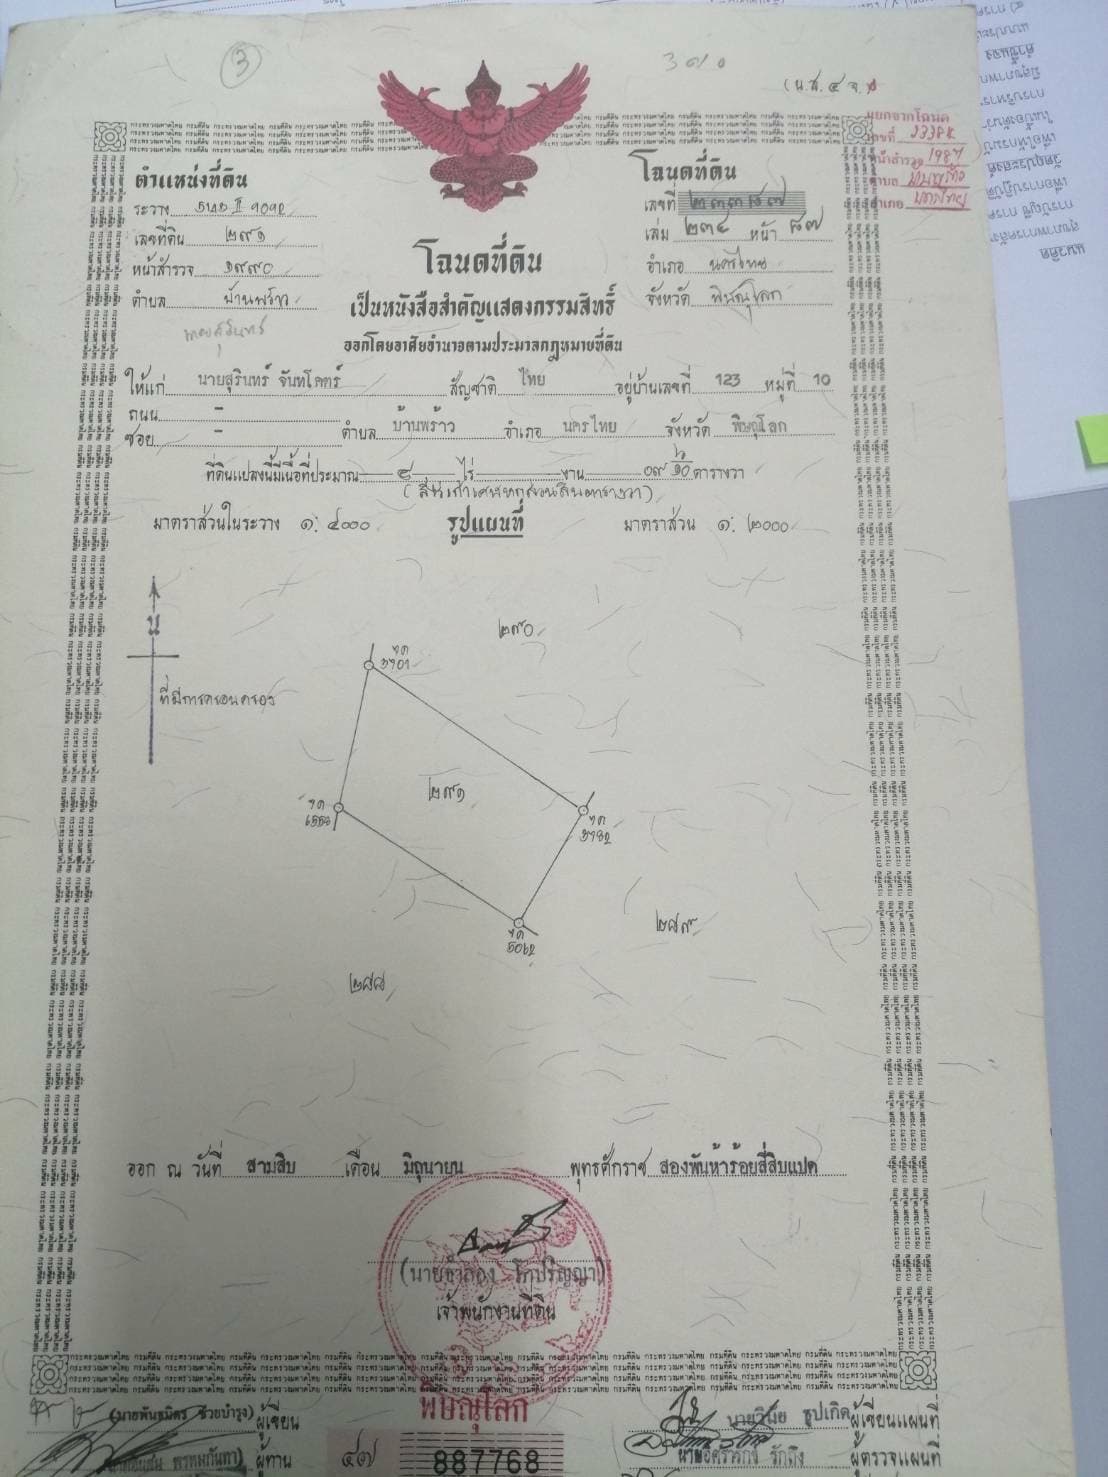 3
๓๗๐
(น.ส. ๔ จ.)
แยกจากโฉนด
เลขที่ 23384
หน้าสำรวจ 1987
ตำบล
อำเภอ นครไทย
ตำแหน่งที่ดิน
ระวาง
เลขที่ดิน ๒๙๑
หน้าสำรวจ ๑๙๙๐
ตำบล บ้านพร้าว
นายสุรินทร์
โฉนดที่ดิน
เลขที่ ๒๓๓๘๗
เล่ม ๒๓๔ หน้า ๘๗
อำเภอ นครไทย
จังหวัด พิษณุโลก
โฉนดที่ดิน
เป็นหนังสือสำคัญแสดงกรรมสิทธิ์
ออกโดยอาศัยอำนาจตามประมวลกฎหมายที่ดิน
ให้แก่ นายสุรินทร์ จันทโคตร์ สัญชาติ ไทย อยู่บ้านเลขที่ 123 หมู่ที่ 10
ถนน -
ซอย - ตำบล บ้านพร้าว อำเภอ นครไทย จังหวัด พิษณุโลก
ที่ดินแปลงนี้มีเนื้อที่ประมาณ ๔ ไร่ งาน ๐๙ ๖/๑๐ ตารางวา
(สี่ไร่เก้าเศษหกส่วนสิบตารางวา)
มาตราส่วนในระวาง ๑: ๔๐๐๐ รูปแผนที่ มาตราส่วน ๑: ๒๐๐๐
น
ที่มีการครอบครอง
๒๙๐
๒๙๑
๒๘๙
๒๘๘
ออก ณ วันที่ สามสิบ เดือน มิถุนายน พุทธศักราช สองพันห้าร้อยสี่สิบแปด
(นายจำลอง โภปริญญา)
เจ้าพนักงานที่ดิน
พิษณุโลก
(นายพันธมิตร ช่วยบำรุง) ผู้เขียน
ผู้ทาน
นายวินัย ธูปเกิด ผู้เขียนแผนที่
รักถึง ผู้ตรวจแผนที่
๔๗ 887768